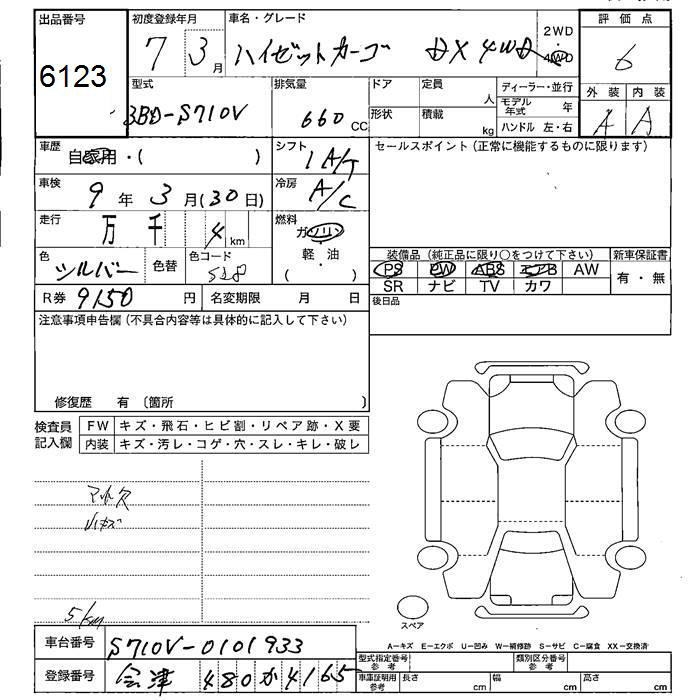 出品番号
6123
初度登録年月
7 3月
車名・グレード
ハイゼットカーゴ DX 4WD
2WD
4WD
評価点
6
外装 内装
A A
型式
3BD-S710V
排気量
660 CC
ドア
形状
定員
人
積載
kg
ディーラー・並行
モデル年式 年
ハンドル 左・右
車歴
自家用・( )
シフト
1A/T
セールスポイント (正常に機能するものに限ります)
車検
9年 3月(30日)
冷房
A/C
走行
万 千 4 km
燃料
ガソリン
軽・油
( )
色
シルバー
色替
色コード
S28
装備品 (純正品に限り○をつけて下さい)
新車保証書
PS PW ABS エアB AW
有・無
SR ナビ TV カワ
後日品
R券 9150 円
名変期限 月 日
注意事項申告欄 (不具合内容等は具体的に記入して下さい)
修復歴 有 〔箇所 〕
検査員記入欄
FW キズ・飛石・ヒビ割・リペア跡・X要
内装 キズ・汚レ・コゲ・穴・スレ・キレ・破レ
マット欠
小キズ
5/km
スペア
A－キズ E－エクボ U－凹み W－補修跡 S－サビ C－腐食 XX－交換済
車台番号 S710V-0101933
登録番号 会津 480か4165
型式指定番号 参考
類別区分番号 参考
車庫証明用 参考
長さ cm
幅 cm
高さ cm